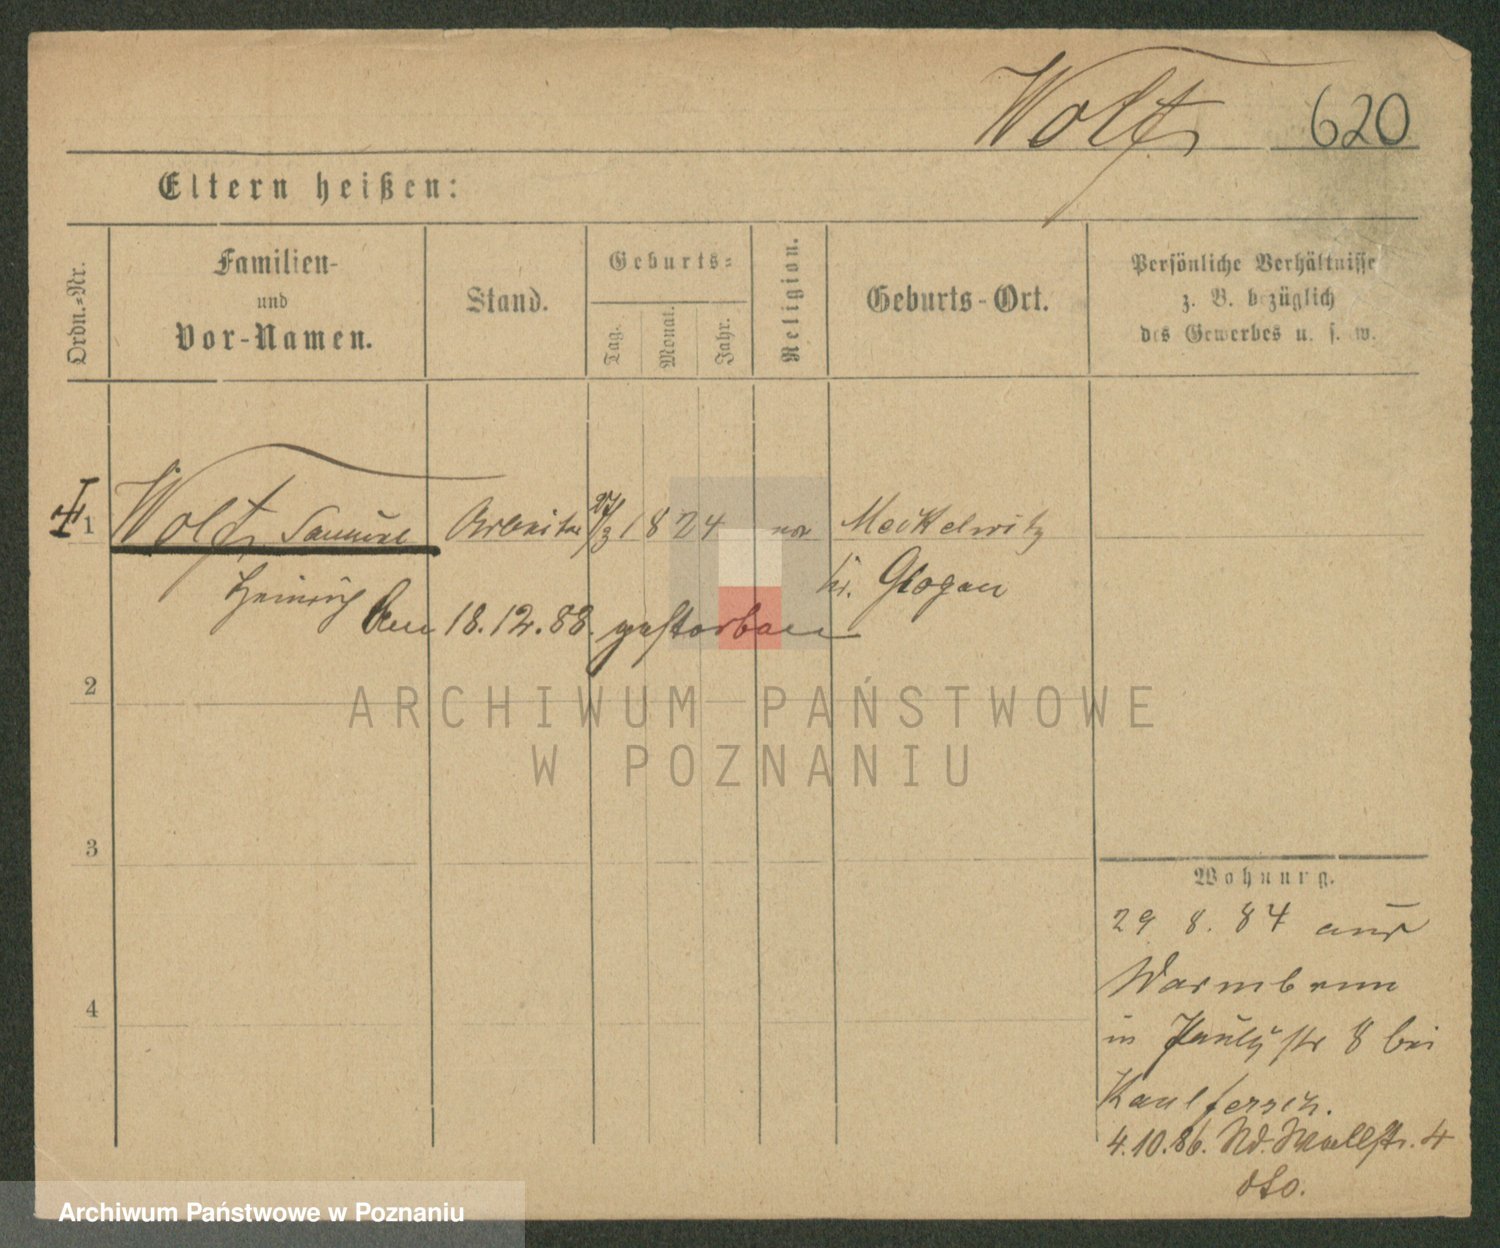 Wolf 620
Eltern heißen:
Ordn.-Nr.
Familien-
und
Vor-Namen.
Stand.
Geburts-
Tag.
Monat.
Jahr.
Religion.
Geburts-Ort.
Persönliche Verhältnisse
z. B. bezüglich
des Gewerbes u. s. w.
1 Wolf, Samuel Arbeiter 27/3 1824 ev Meckelwitz
Heinrich Kr. Glogau
Am 18.12.88. gestorben
2
ARCHIWUM PAŃSTWOWE
W POZNANIU
3
Wohnung.
29 8. 84 aus
Warmbrunn
in Paulystr 8 bei
4
4.10.86. Nd. Wallstr. 4
dto.
Archiwum Państwowe w Poznaniu